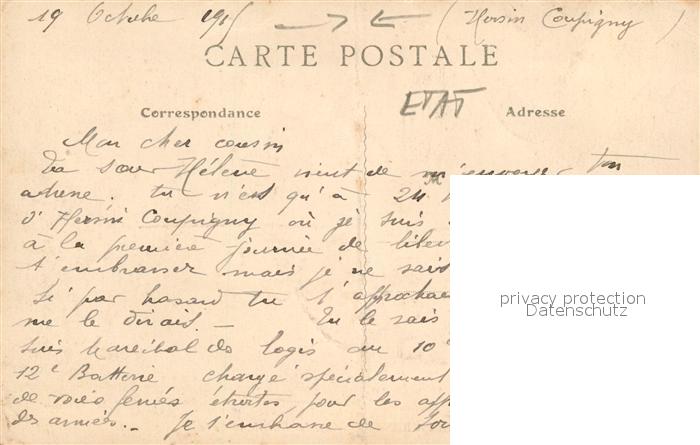 19 Octobre 1915 (Hersin Coupigny)
CARTE POSTALE
ETAT
Correspondance Adresse
Mon cher cousin
Ta sœur Hélène vient de m'envoyer ton
adresse. Tu n'est qu'à 24
d'Hersin Coupigny où je suis
à la première journée de liber
t'embrasser mais je ne sais
Si par hasard tu t'approchae
me le dirais. – Tu le sais
suis Marechal des logis au 10e
12e Batterie chargé spécialement
de voies ferrées étroites pour les
des armées. – Je t'embrasse de
privacy protection
Datenschutz